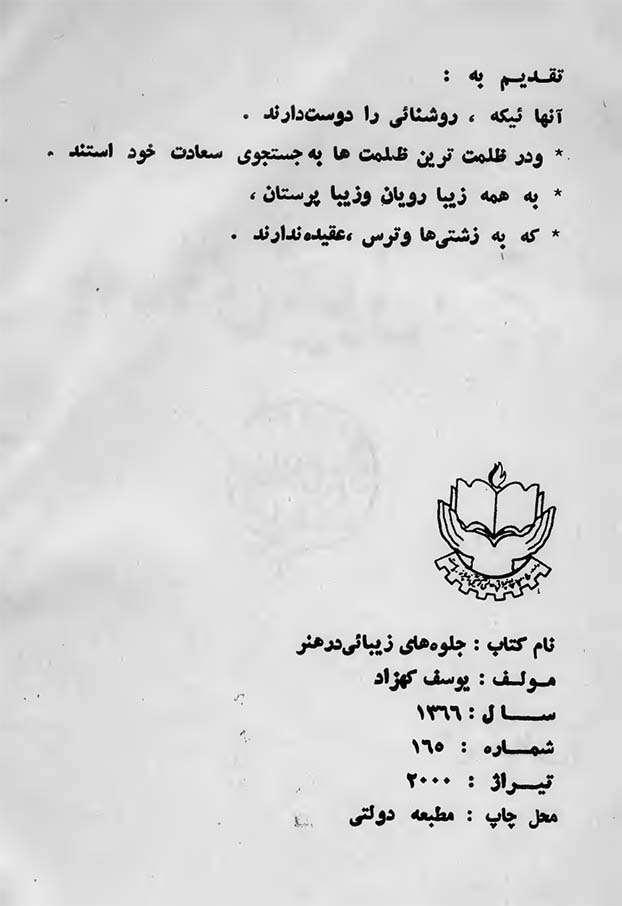 تقدیم به :
آنها ئیکه ، روشنائی را دوست‌دارند .
* ودر ظلمت ترین ظلمت ها به جستجوی سعادت خود استند .
* به همه زیبا رویان وزیبا پرستان ،
* که به زشتی‌ها وترس ،عقیده‌ندارند .
نام کتاب : جلوه‌های زیبائی‌درهنر
مولف : یوسف کهزاد
سال : ۱۳۶۶
شماره : ۱۶۵
تیراژ : ۲۰۰۰
محل چاپ : مطبعه دولتی